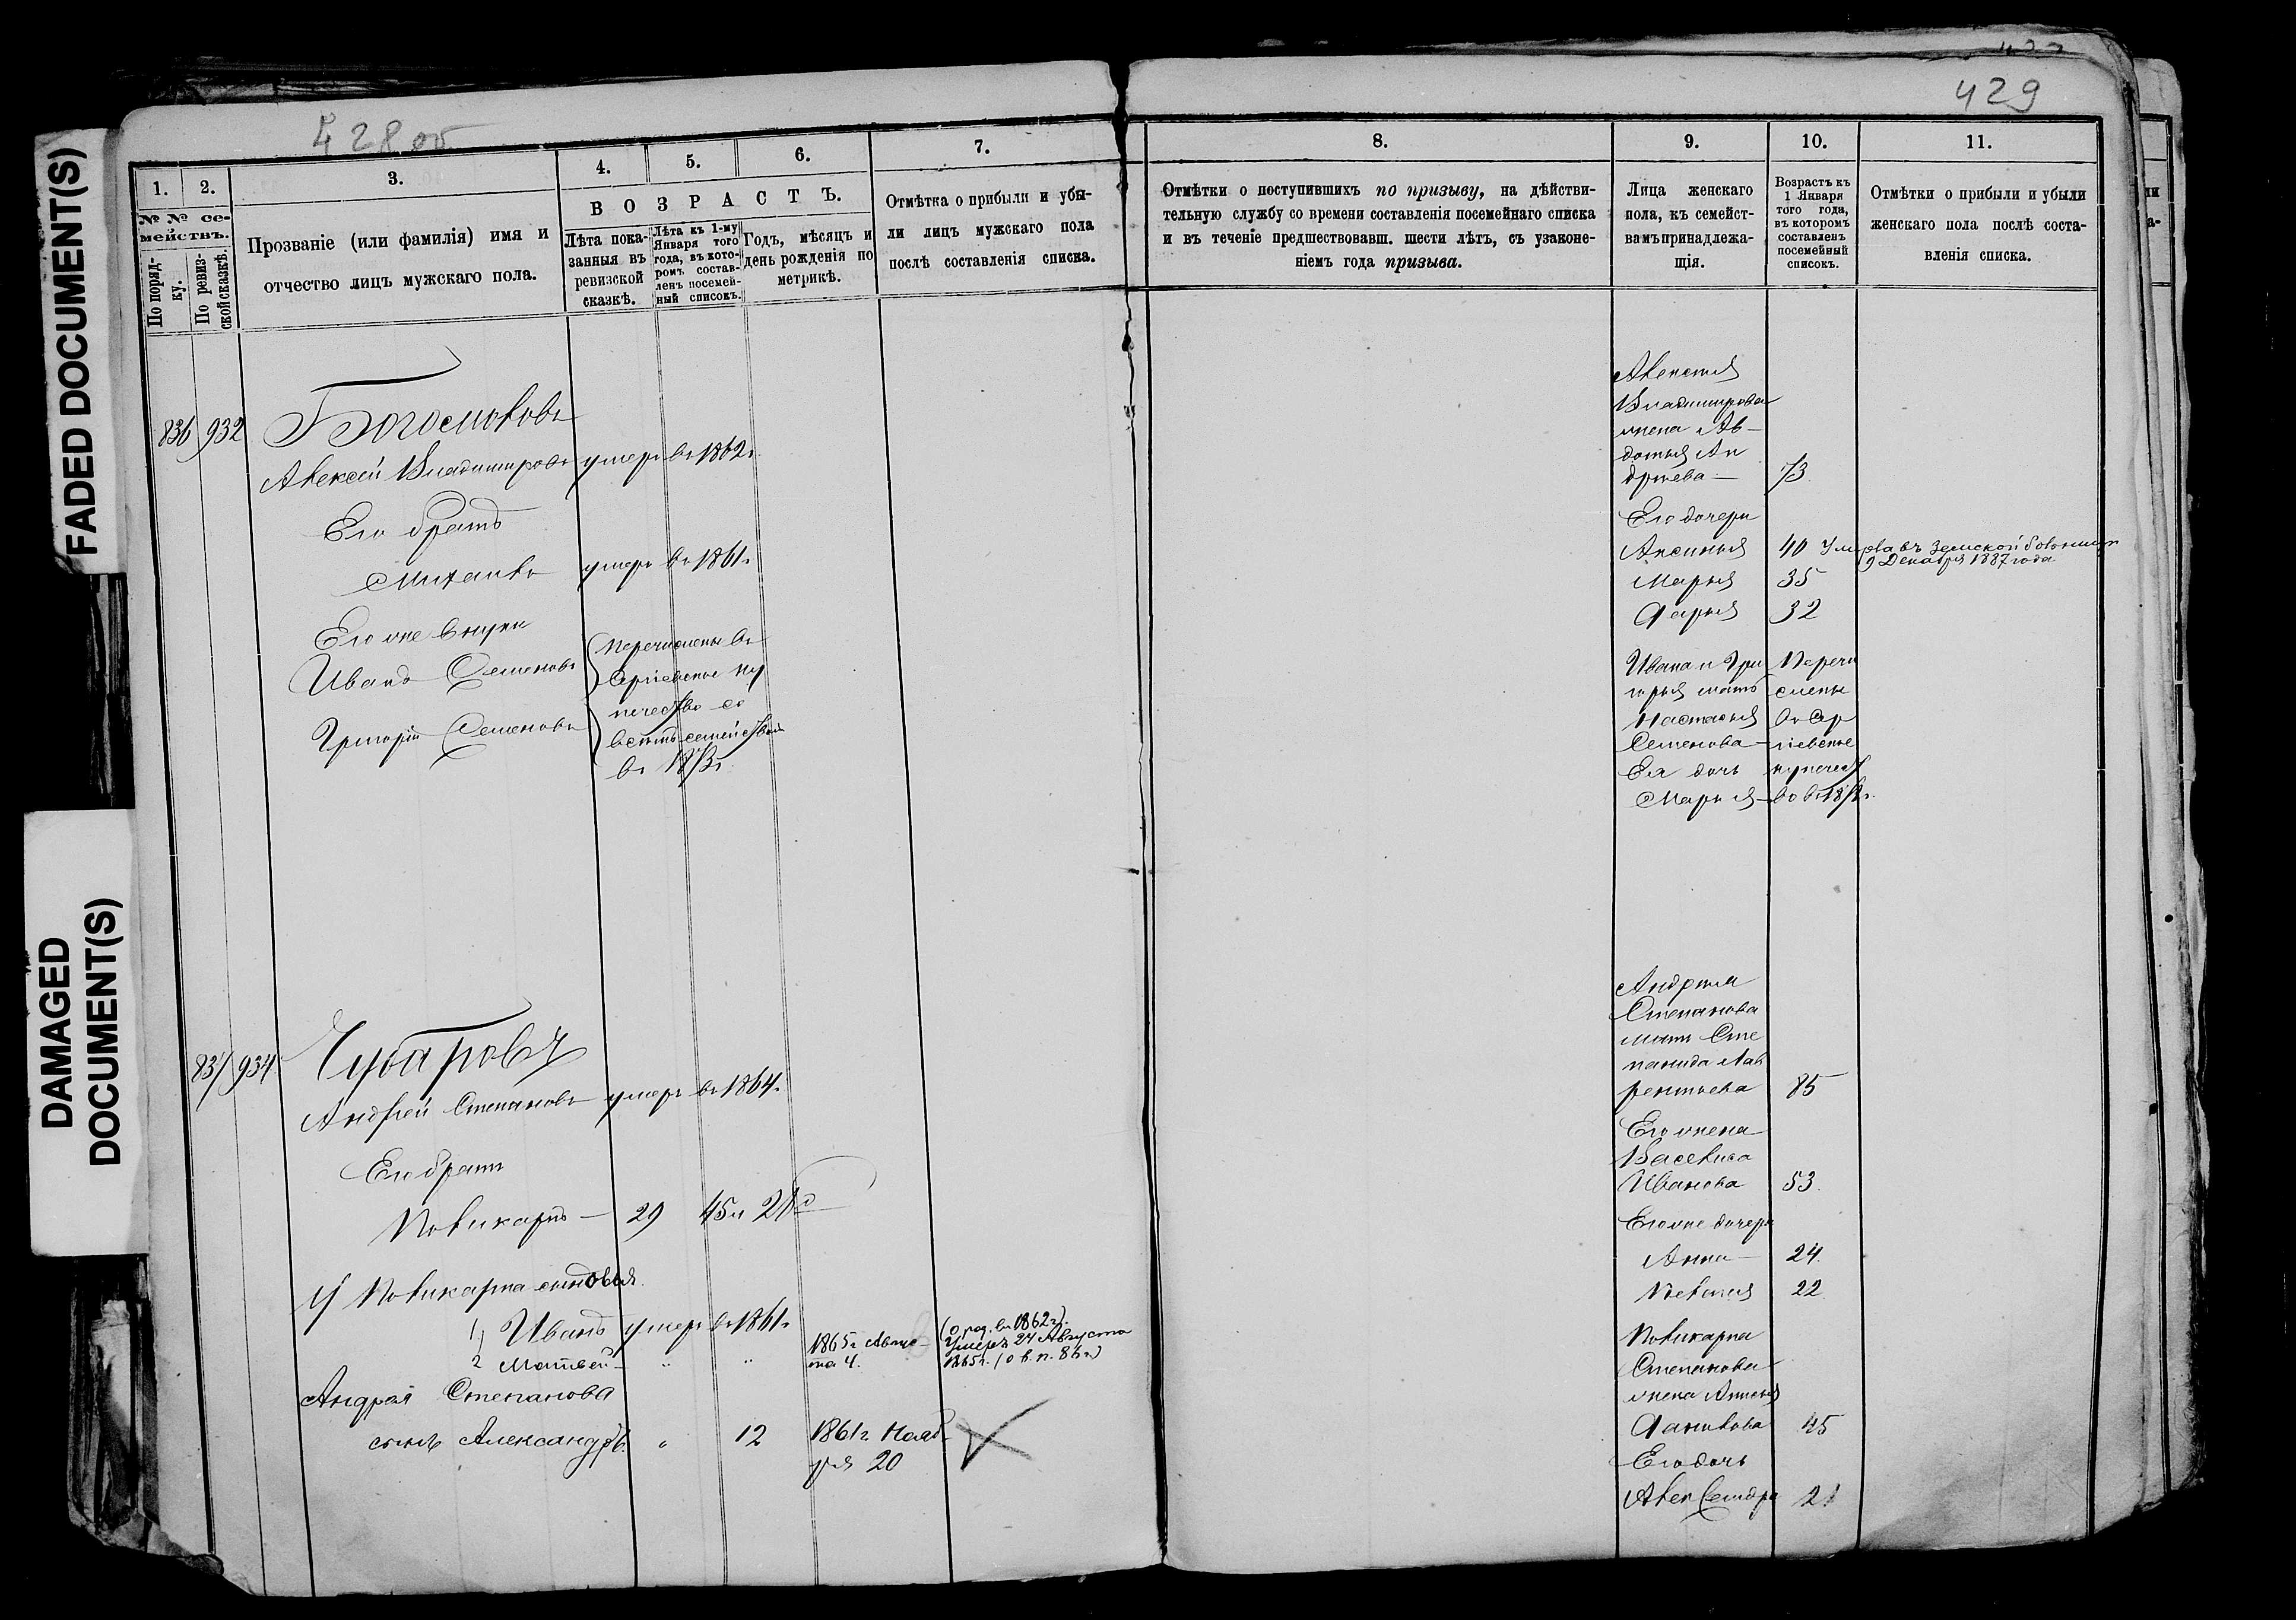 FADED DOCUMENT(S)
DAMAGED
DOCUMENT(S)
428 об
1.
2.
3.
4.
5.
6.
7.
№ № се-
мействъ.
По поряд-
ку.
По ревиз-
ской сказкѣ.
Прозваніе (или фамилія) имя и
отчество лицъ мужскаго пола.
В О З Р А С Т Ъ.
Лѣта пока-
занныя въ
ревизской
сказкѣ.
Лѣта къ 1-му
Января того
года, въ кото-
ромъ состав-
ленъ посемей-
ный списокъ.
Годъ, мѣсяцъ и
день рожденія по
метрикѣ.
Отмѣтка о прибыли и убы-
ли лицъ мужскаго пола
послѣ составленія списка.
836 932 Богословъ
Алексѣй Владимировъ умеръ въ 1862г.
Его братъ
Михаилъ умеръ въ 1861г.
Его же внуки
Иванъ Семеновъ
Григорій Семеновъ
перечислены въ
Сергіевское ку
печество со
всѣмъ семействомъ
въ 1873г.
837 934 Чубаровъ
Андрей Степановъ умеръ въ 1864г.
Его братъ
Поликарпъ — 29 45
У Поликарпа сыновья
1) Иванъ умеръ въ 1861г.
2 Матвей — „ „ 1865г. Авгус-
та 4.
(о род. въ 1862г.)
Умеръ 24 Августа
1865г.
Андрея Степанова
сынъ Александръ „ 12 1861г. Нояб-
ря 20
429
8.
9.
10.
11.
Отмѣтки о поступившихъ по призыву, на дѣйстви-
тельную службу со времени составленія посемейнаго списка
и въ теченіе предшествовавш. шести лѣтъ, съ узаконе-
ніемъ года призыва.
Лица женскаго
пола, къ семейст-
вамъ принадлежа-
щія.
Возрастъ къ
1 Января
того года,
въ которомъ
составленъ
посемейный
списокъ.
Отмѣтки о прибыли и убыли
женскаго пола послѣ соста-
вленія списка.
Алексѣя
Владимирова
жена Ав-
дотья Ан
дреева — 73
Его дочери
Аксинья 40 Умерла въ Земской больницѣ
9 Декабря 1887 года
Марья 35
Дарья 32
Ивана и Гри
горья мать
Настасья
Семенова —
Ея дочь
Марья —
Перечи
слены
въ Сер
гіевское
купечест
во въ 187
Андрея
Степанова
мать Сте
панида Лав
рентьева 85
Его жена
Василиса
Иванова 53.
Его же дочери
Анна — 24.
22
Поликарпа
Степанова
жена
Данилова 45
Его дочь
Александра 21